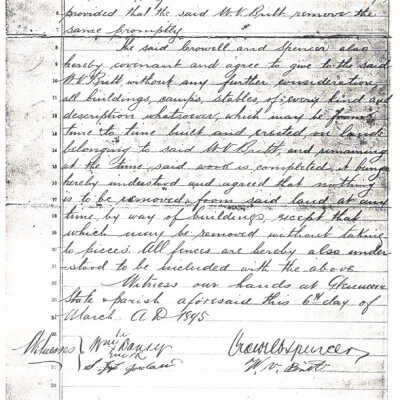 provided that the said W.V. Britt remove the
same promptly
The said Crowell and Spencer also
hereby covenant and agree to give to the said
W.V. Britt, without any further consideration,
all buildings, camps, stables, of every kind and
description whatsoever, which may be from
time to time built and erected on lands
belonging to said W.V. Britt, and remaining
at the time said work is completed, it being
hereby understood and agreed that nothing
is to be removed from said land at any
time, by way of buildings, except that
which may be removed without taking
to pieces. All fences are hereby also under
stood to be included with the above
Witness our hands at
State & parish aforesaid this 6th day of
March A.D. 1895
Witnesses Wm Crowell & Spencer
W. V. Britt